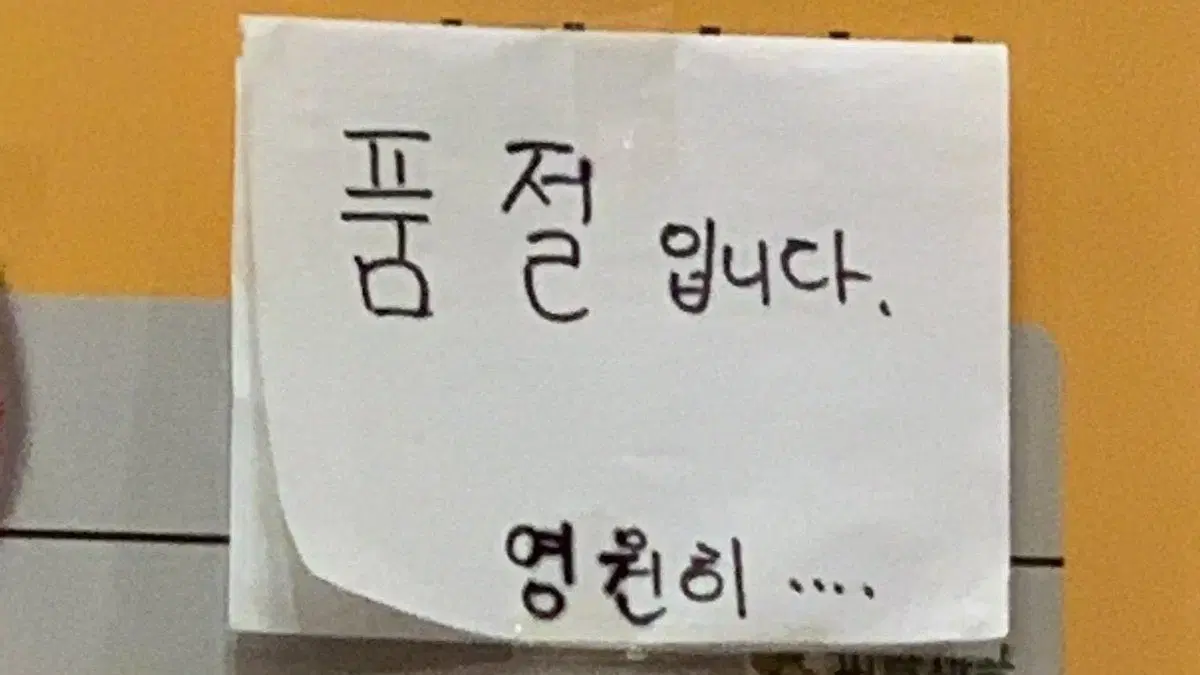 품절입니다.
영원히 ....